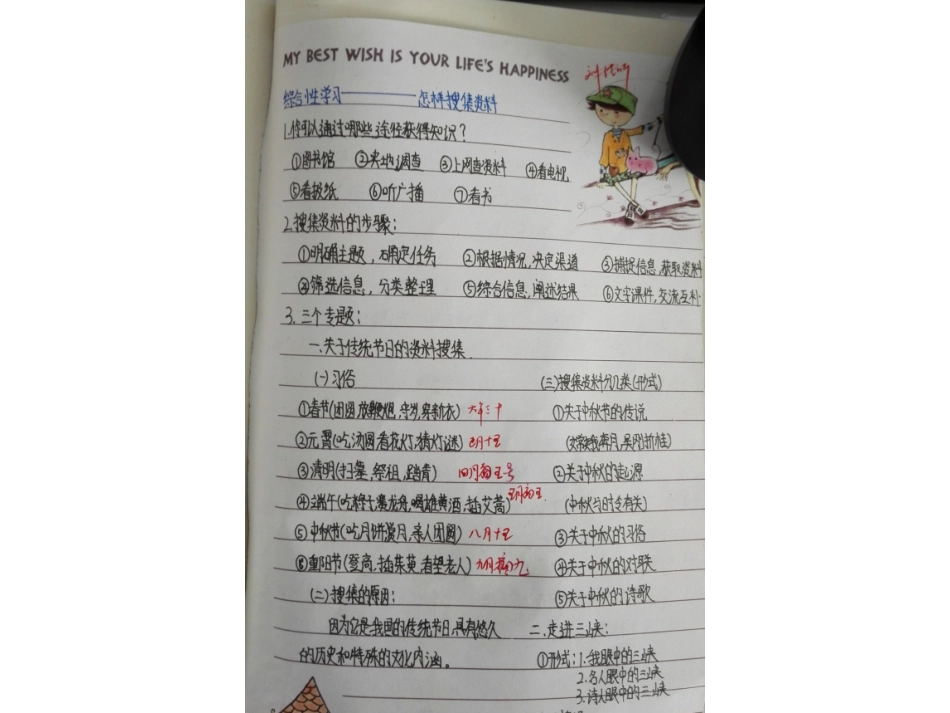 MY BEST WISH IS YOUR LIFE'S HAPPINESS
综合性学习————怎样搜集资料
1.你可以通过哪些途径获得知识？
①图书馆 ②实地调查 ③上网查资料 ④看电视
⑤看报纸 ⑥听广播 ⑦看书
2.搜集资料的步骤：
①明确主题，确定任务 ②根据情况，决定渠道 ③捕捉信息，获取资料
④筛选信息，分类整理 ⑤综合信息，阐述结果 ⑥文字课件，交流互补
3.三个专题：
一.关于传统节日的资料搜集
(一)习俗
①春节(团圆,放鞭炮,守岁,穿新衣) 大年三十
②元宵(吃汤圆,看花灯,猜灯谜) 正月十五
③清明(扫墓,祭祖,踏青) 四月初五号
④端午(吃粽子,赛龙舟,喝雄黄酒,插艾蒿) 五月初五
⑤中秋节(吃月饼,赏月,亲人团圆) 八月十五
⑥重阳节(登高,插茱萸,看望老人) 九月初九
(二)搜集的原因：
因为它是我国的传统节日,具有悠久
的历史和特殊的文化内涵。
(三)搜集资料分几类(形式)
①关于中秋节的传说
(嫦娥奔月,吴刚折桂)
②关于中秋的起源
(中秋与时令有关)
③关于中秋的习俗
④关于中秋的对联
⑤关于中秋的诗歌
二.走进三峡：
①形式：1.我眼中的三峡
2.名人眼中的三峡
3.诗人眼中的三峡